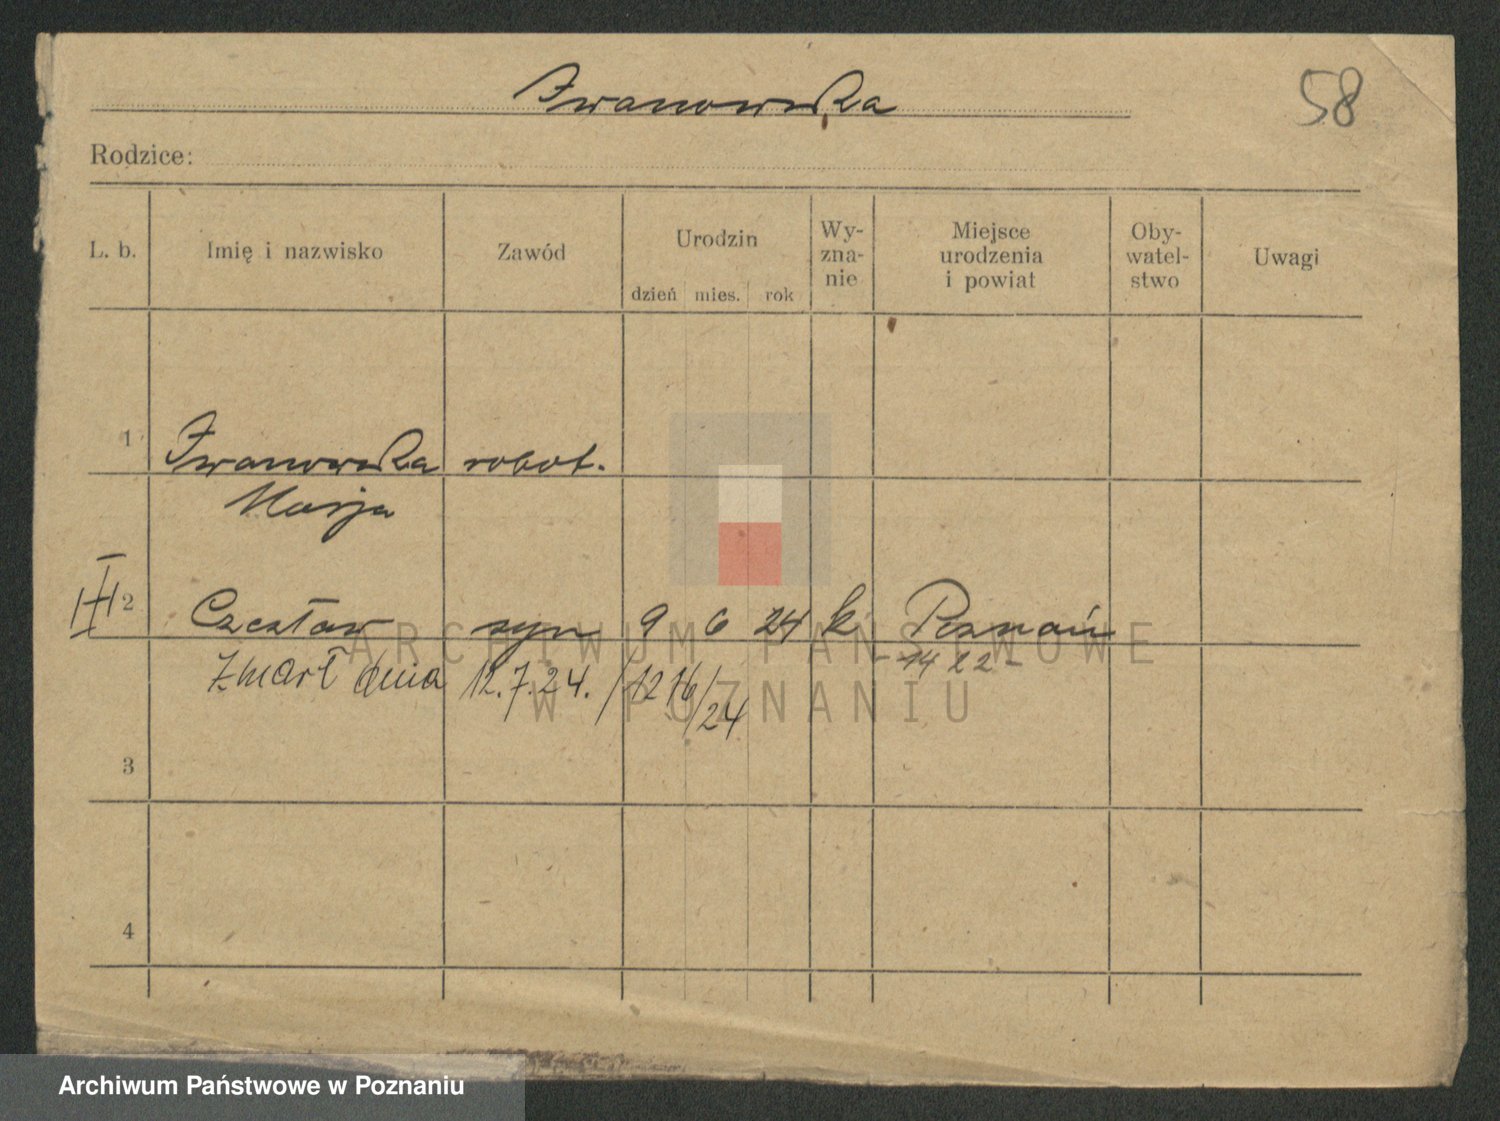 Iwanowska
58
Rodzice:
L. b. Imię i nazwisko Zawód Urodzin dzień mies. rok Wy-zna-nie Miejsce urodzenia i powiat Oby-watel-stwo Uwagi
1 Iwanowska robot.
Marja
2 Czesław syn 9 6 24 k Poznań
- 1422 -
Zmarł dnia 12.7.24. /1216/24
3
4
ARCHIWUM PAŃSTWOWE
W POZNANIU
Archiwum Państwowe w Poznaniu